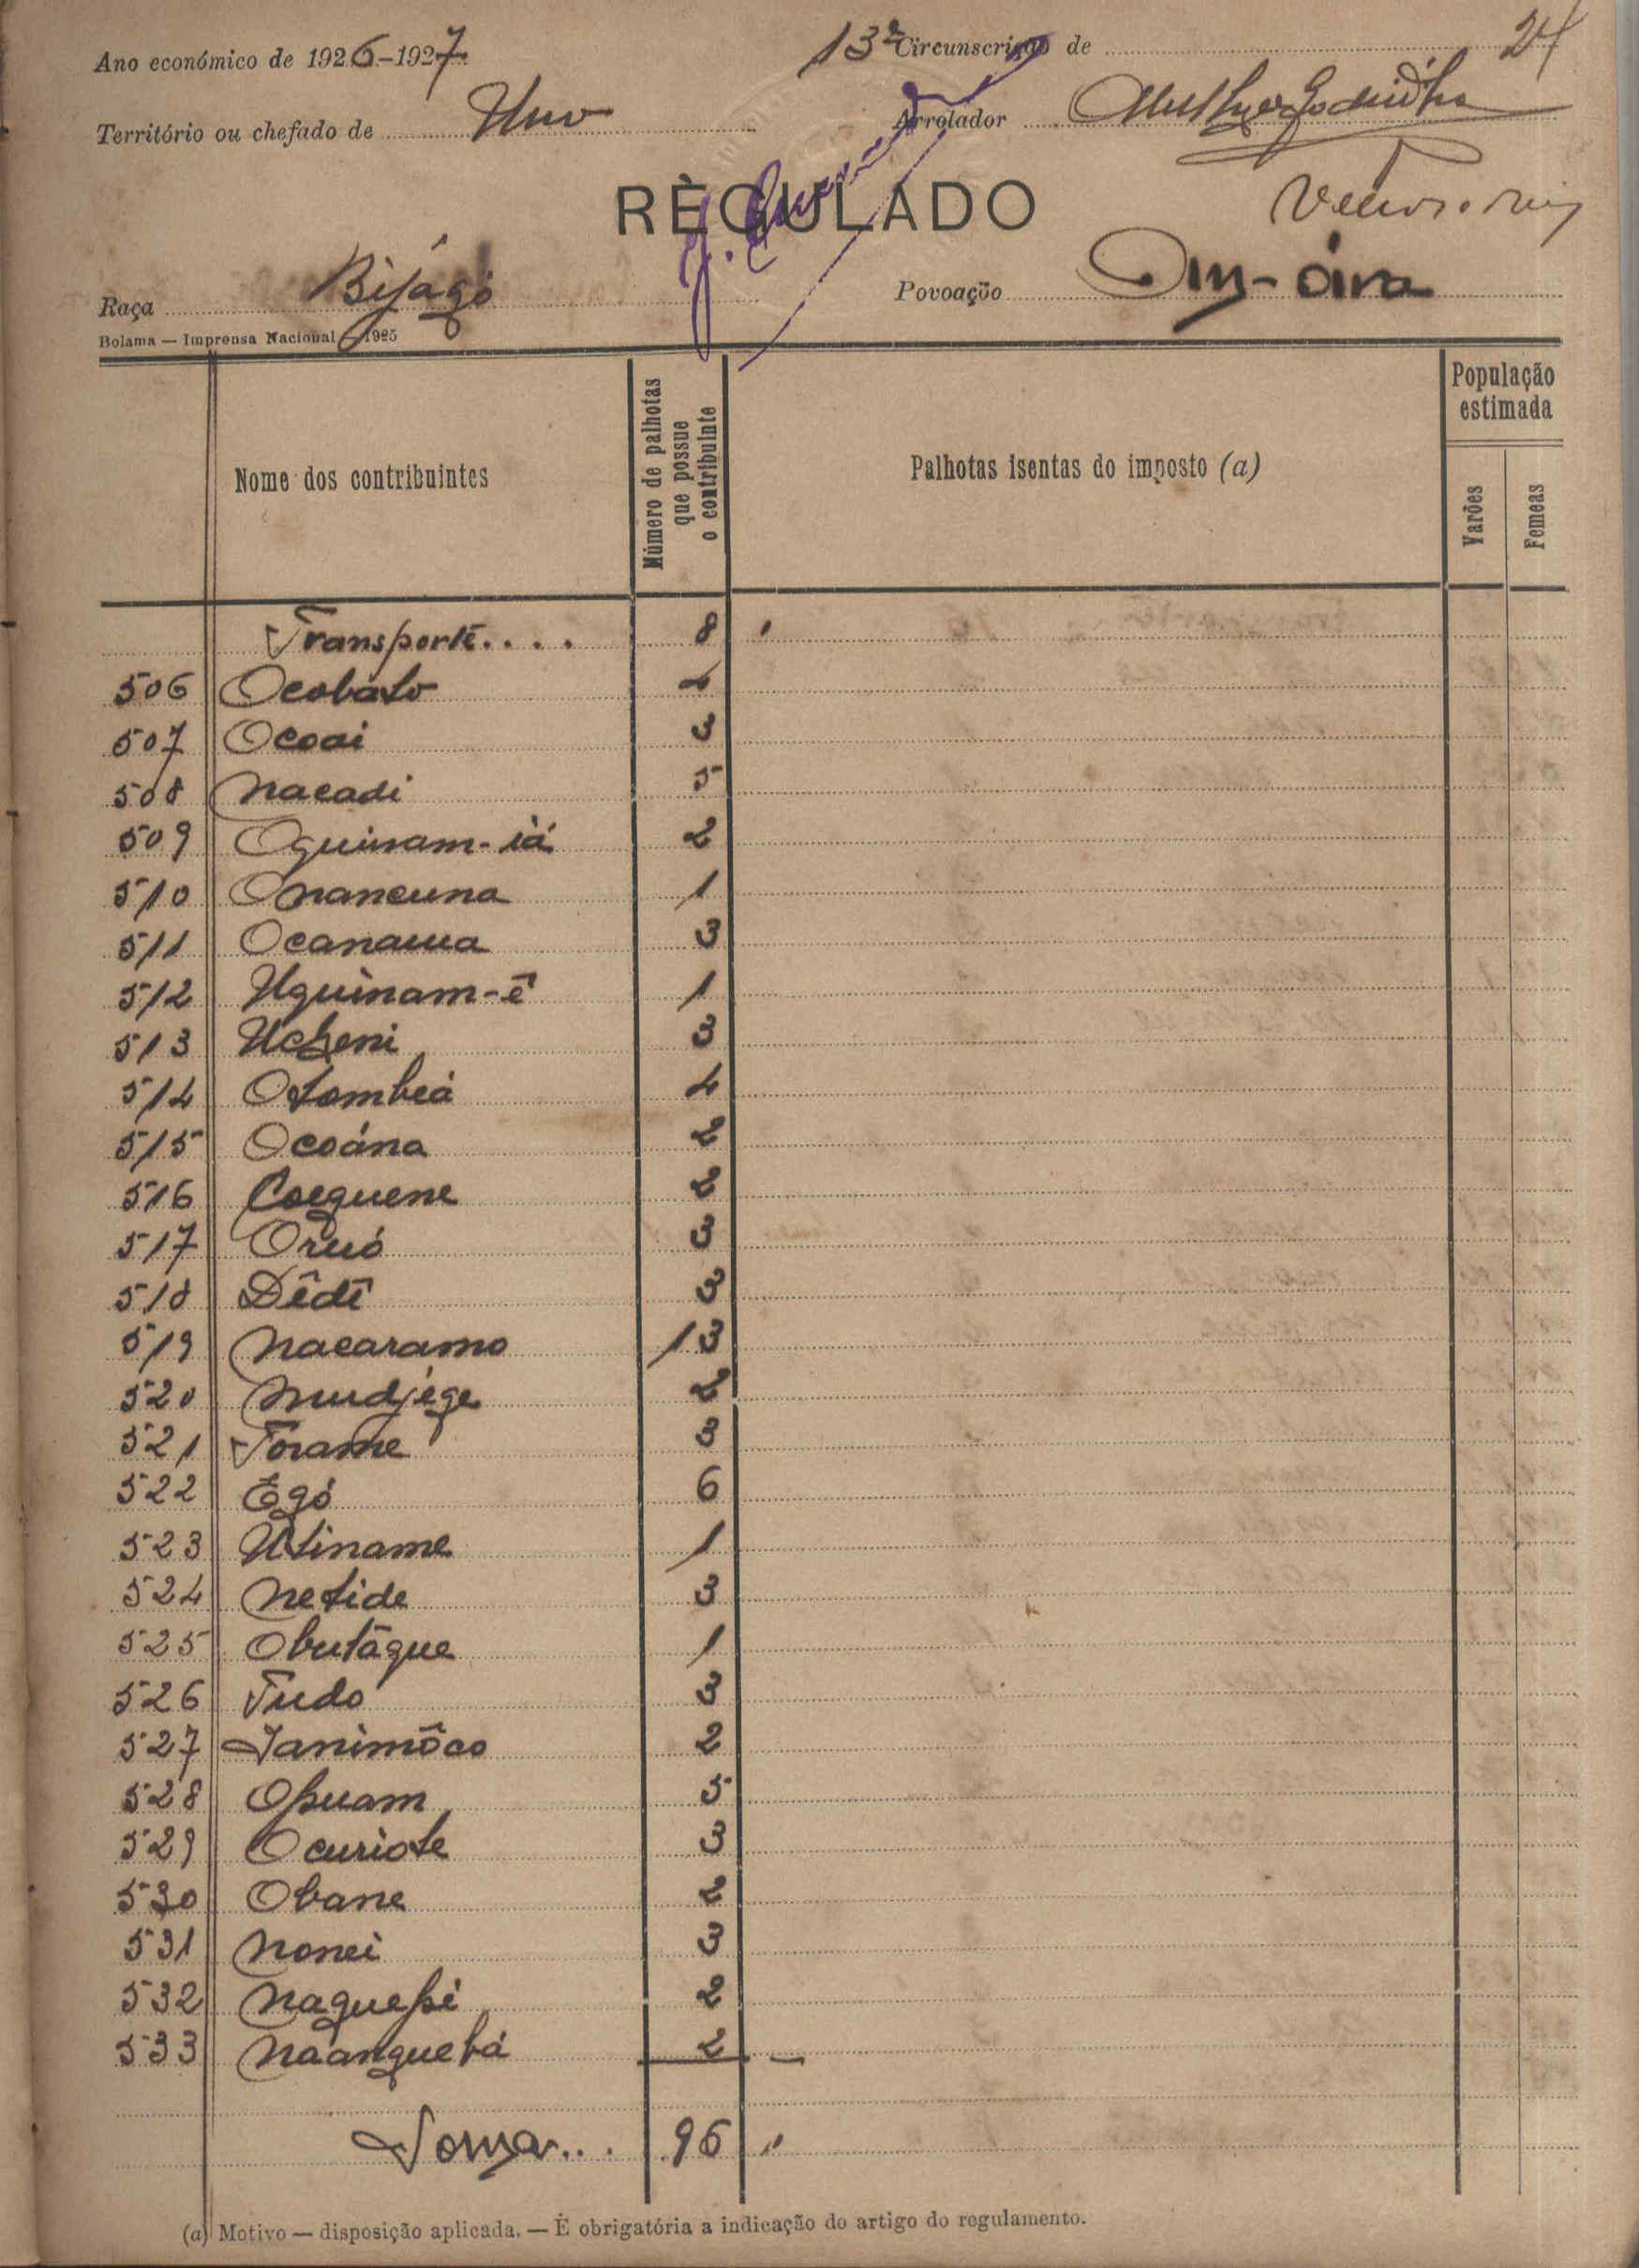 24
Ano económico de 1926-1927 13ª Circunscrição de
Território ou chefado de Uno Arrolador
RÈGULADO
Raça Bijágó Povoação
Bolama — Imprensa Nacional — 1925
Nome dos contribuintes
Número de palhotas que possue o contribuinte
Palhotas isentas do imposto (a)
População estimada
Varões
Femeas
Transporte.... 8
506 Ocobato 4
507 Ocoai 3
508 Nacadi 5
509 Oguinam-iá 2
510 Onancuna 1
511 Ocanaua 3
512 Uguinam-ê 1
513 Ucheni 3
514 Otombeá 4
515 Ocoána 2
516 Coeguene 2
517 Oruó 3
518 Dêdê 3
519 Nacaramo 13
520 Mudjége 2
521 Torame 3
522 Egó 6
523 Utiname 1
524 Netide 3
525 Obutãque 1
526 Tudo 3
527 Janimôco 2
528 Opuam 5
529 Ocuriote 3
530 Obane 2
531 Nonei 3
532 Naguepi 2
533 Naanguebá 2
Soma... 96
(a) Motivo — disposição aplicada. — É obrigatória a indicação do artigo do regulamento.